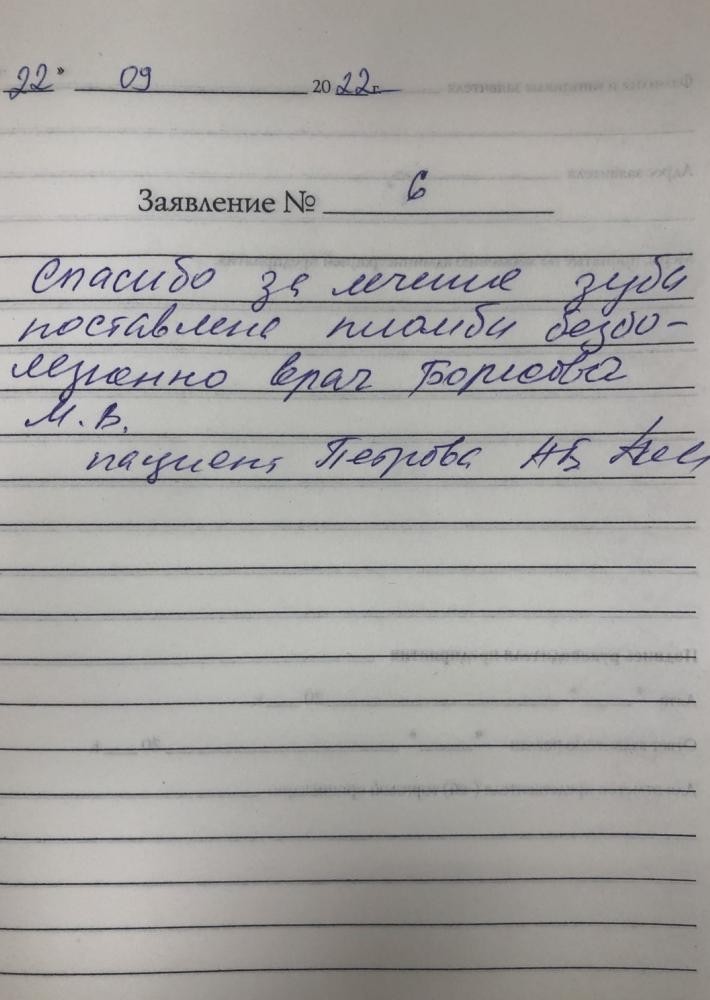 22» 09 2022г.
Заявление № 6
Спасибо за лечение зуба
поставлена пломба безбо-
лезненно врач Борисова
М.В.
пациент Петрова НБ